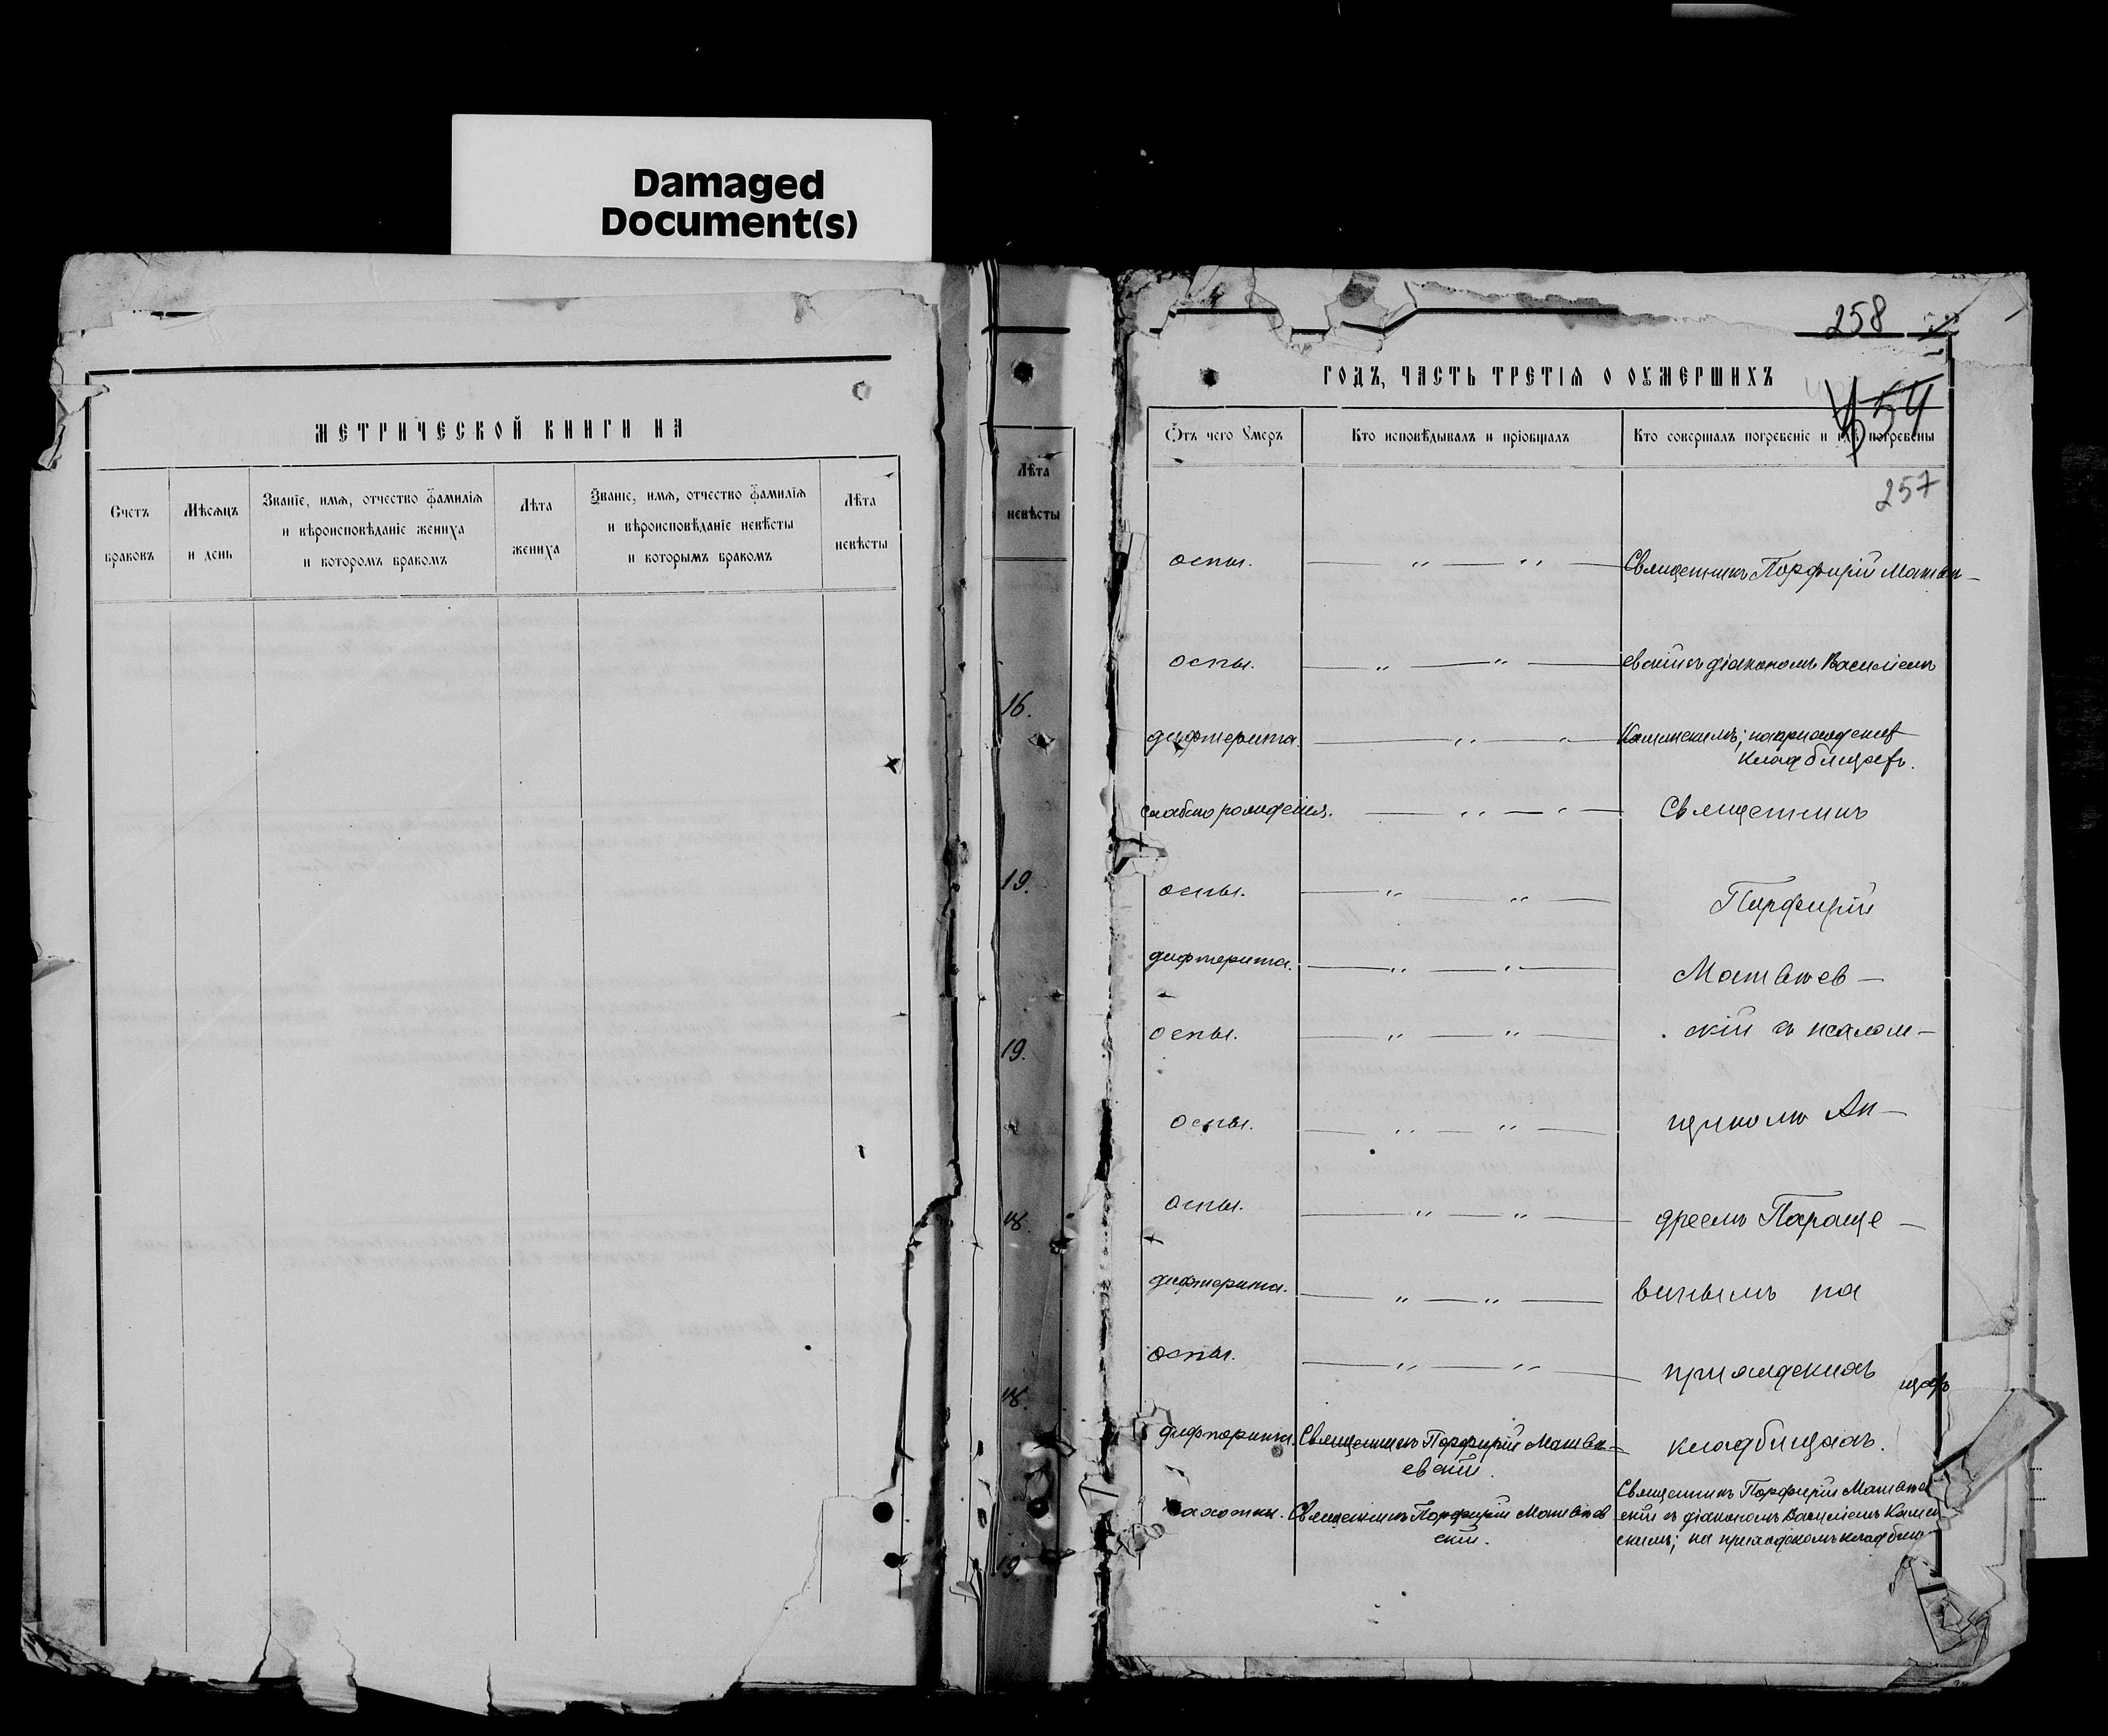 Damaged
Document(s)
МЕТРИЧЕСКОЙ КНИГИ НА
Счетъ браковъ
Мѣсяцъ и день
Званіе, имя, отчество фамилія и вѣроисповѣданіе жениха и которомъ бракомъ
Лѣта жениха
Званіе, имя, отчество фамилія и вѣроисповѣданіе невѣсты и которымъ бракомъ
Лѣта невѣсты
Лѣта невѣсты
16.
19.
19.
18.
18.
19
258
ГОДЪ, ЧАСТЬ ТРЕТІЯ О ОУМЕРШИХЪ
54
Отъ чего Умеръ
Кто исповѣдывалъ и пріобщалъ
Кто совершалъ погребеніе и гдѣ погребены
257
оспы. — " — " — Священникъ Порфирій Матвѣ—
оспы. — " — " — евскій съ діакономъ Василіемъ
дифтерита. — " — " — Каминскимъ; на приходскихъ
кладбищахъ.
слаборожденія. — " — " — Священникъ
оспы. — " — " — Порфирій
дифтерита. — " — " — Матвѣев—
оспы. — " — " — скій съ псалом—
оспы. — " — " — щикомъ Ан—
оспы. — " — " — дреемъ Параще—
дифтерита. — " — " — винымъ на
оспы. — " — " — приходскихъ
дифтерита. Священникъ Порфирій Матвѣ—
евскій.
кладбищахъ.
чахотки. Священникъ Порфирій Матвѣев
скій.
Священникъ Порфирій Матвѣев
скій съ діакономъ Василіемъ Камин
скимъ; на приходскомъ кладби
щѣ